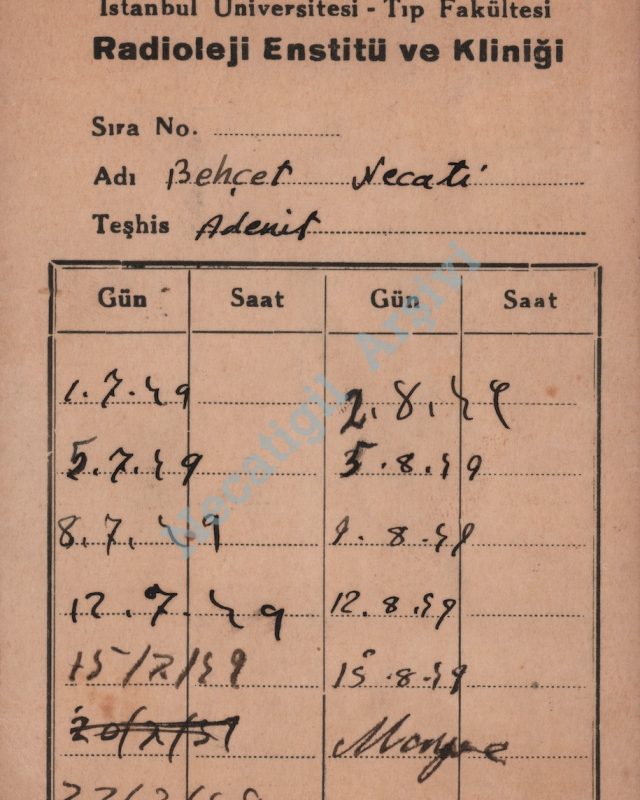 İstanbul Üniversitesi - Tıp Fakültesi
Radioleji Enstitü ve Kliniği
Sıra No.
Adı Behçet Necati
Teşhis Adenit
Gün Saat Gün Saat
1.7.49 2.8.49
5.7.49 5.8.49
8.7.49 9.8.49
12.7.49 12.8.49
15/7/49 15.8.49
Necatigil Arşivi